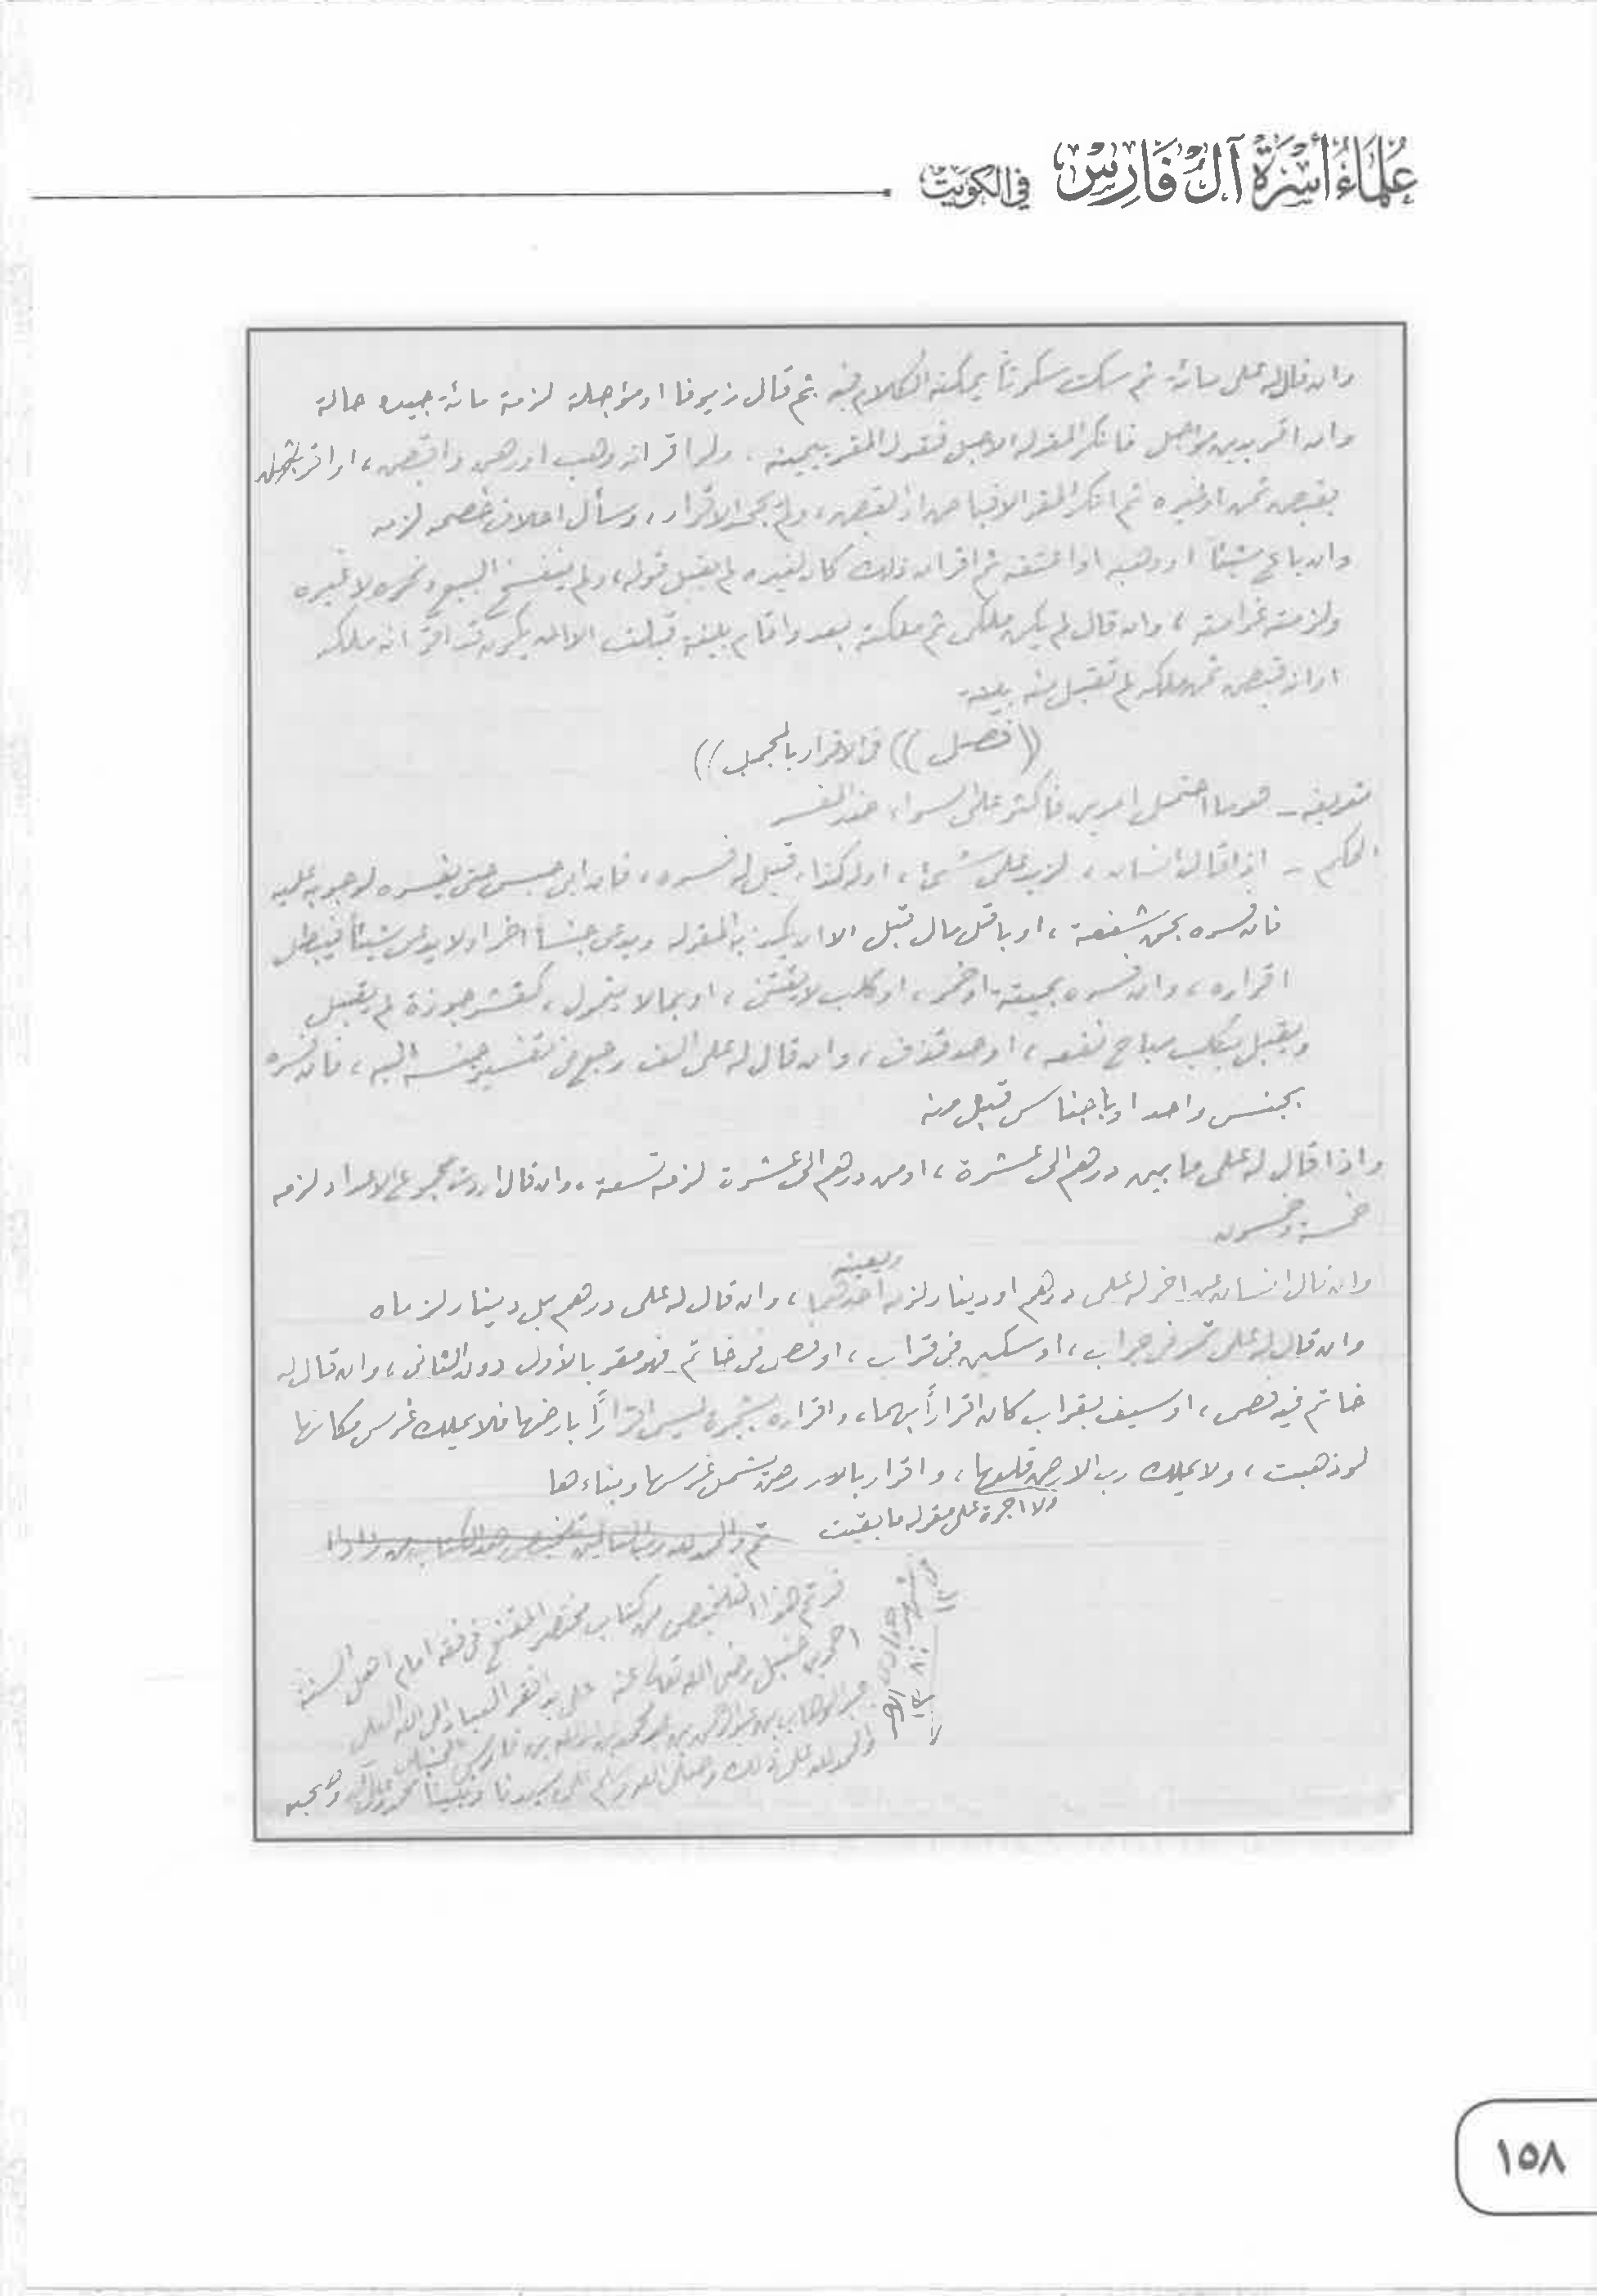 علماء أسرة آل فارس في الكويت
وان قال له على مائة ثم سكت سكوتاً يمكنه الكلام فيه ثم قال زيوفا او مؤجلة لزمة مائة جيده حالة
وان اقر بدين مؤجل فانكر المقر له الاجل فقول المقر بيمينه، ولو اقر انه وهب او رهن واقبض، او اقر
بقبض ثمن او غيره ثم انكر المقر الاقباض او القبض، ولم يجحد الاقرار، وسأل احلاف خصمه لزمه
وان باع شيئاً او وهبه او اعتقه ثم اقر ان ذلك كان لغيره لم يقبل قوله، ولم ينفسخ البيع ونحوه لا غيره
ولزمته غرامته، وان قال لم يكن ملكي ثم ملكته بعد واقام بينة قبلت الا ان يكون قد اقر انه ملكه
او انه قبض ثمن ملكه لم تقبل منه بينة
((فصل)) في الاقرار بالمجمل))
تعريفه - هو ما احتمل امرين فاكثر على السواء ضد المفسر
الحكم - اذا قال انسان، لزيد على شئ، او له كذا، قيل له فسره، فان ابى حبس حتى يفسره لوجوبه عليه
فان فسره بحق شفعة، او باقل مال قبل الا ان يكذبه المقر له ويدعى جنساً اخر اولا يدعى شيئاً فيبطل
اقراره، وان فسره بميتة او خمر، او كلب لا يقتنى، او بما لا يتمول، كقشر جوزة لم يقبل
ويقبل بكلب مباح نفعه، او حد قذف، وان قال له على الف رجع في تفسير جنسه اليه، فان فسره
بجنس واحد او باجناس قبل منه
واذا قال له على ما بين درهم الى عشرة، او من درهم الى عشرة لزمه تسعة، وان قال اردت مجموع الاعداد لزمه
خمسة وخمسون
وان قال انسان عن اخر له على درهم او دينار لزمه احدهما ويعينه، وان قال له على درهم بل دينار لزماه
وان قال له على تمر في جراب، او سكين في قراب، او فص في خاتم فهو مقر بالأول دون الثاني، وان قال له
خاتم فيه فص، او سيف بقراب كان اقراراً بهما، واقراره بشجرة ليس اقراراً بارضها فلا يملك غرس مكانها
لو ذهبت، ولا يملك رب الارض قلعها، واقرار بالدار يشمل غرسها وبناءها
ولا اجرة على مقر له ما بقيت
تم والحمد لله رب العالمين
تم هذا التلخيص من كتاب مختصر المقنع في فقه امام اهل السنة
احمد بن حنبل رضي الله تعالى عنه على يد افقر العباد الى الله العلي
عبد الوهاب بن عبد الرحمن بن محمد بن عبد الله بن فارس
والحمد لله على ذلك وصلى الله وسلم على سيدنا ونبينا محمد وآله وصحبه
١٥٨